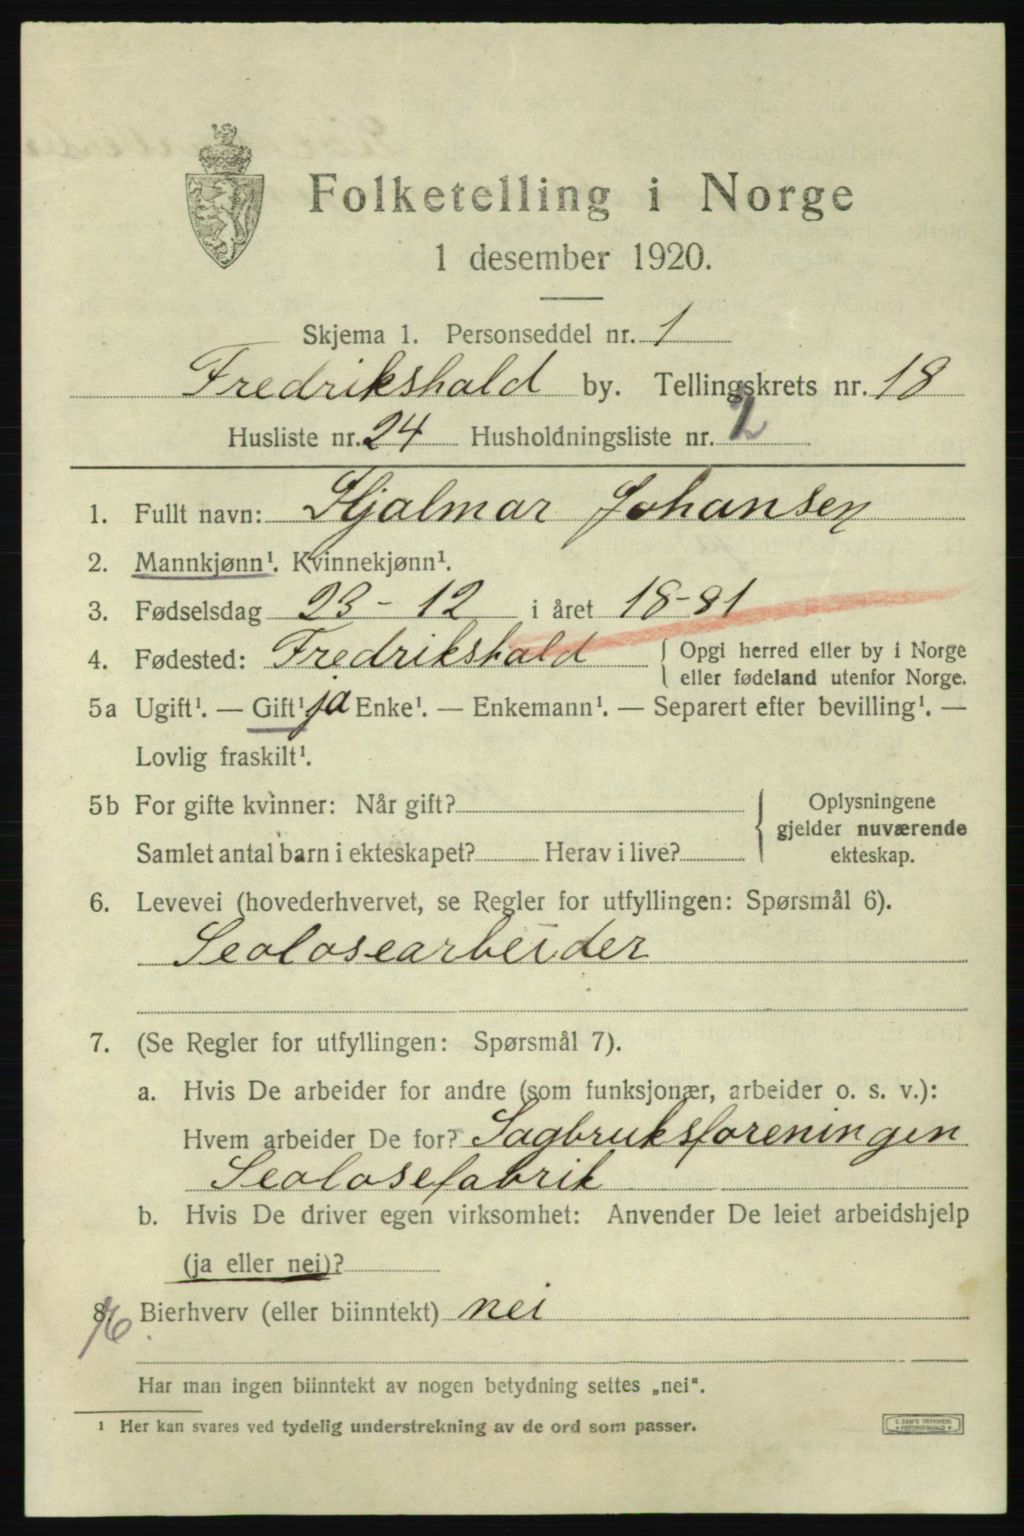 Folketelling i Norge
1 desember 1920.
Skjema 1. Personseddel nr. 1
Fredrikshald by. Tellingskrets nr. 18
Husliste nr. 24 Husholdningsliste nr. 2
1. Fullt navn: Hjalmar Johansen
2. Mannkjønn¹. Kvinnekjønn¹.
3. Fødselsdag 23-12 i året 18-81
4. Fødested: Fredrikshald { Opgi herred eller by i Norge
eller fødeland utenfor Norge.
5a Ugift¹. — Gift¹. ja Enke¹. — Enkemann¹. — Separert efter bevilling¹. —
Lovlig fraskilt¹.
5b For gifte kvinner: Når gift? { Oplysningene
gjelder nuværende
Samlet antal barn i ekteskapet? Herav i live? ekteskap.
6. Levevei (hovederhvervet, se Regler for utfyllingen: Spørsmål 6).
Seolosearbeider
7. (Se Regler for utfyllingen: Spørsmål 7).
a. Hvis De arbeider for andre (som funksjonær, arbeider o. s. v.):
Hvem arbeider De for? Sagbruksforeningen
Seolosefabrik
b. Hvis De driver egen virksomhet: Anvender De leiet arbeidshjelp
(ja eller nei)?
8. Bierhverv (eller biinntekt) nei
Har man ingen biinntekt av nogen betydning settes „nei".
¹ Her kan svares ved tydelig understrekning av de ord som passer.